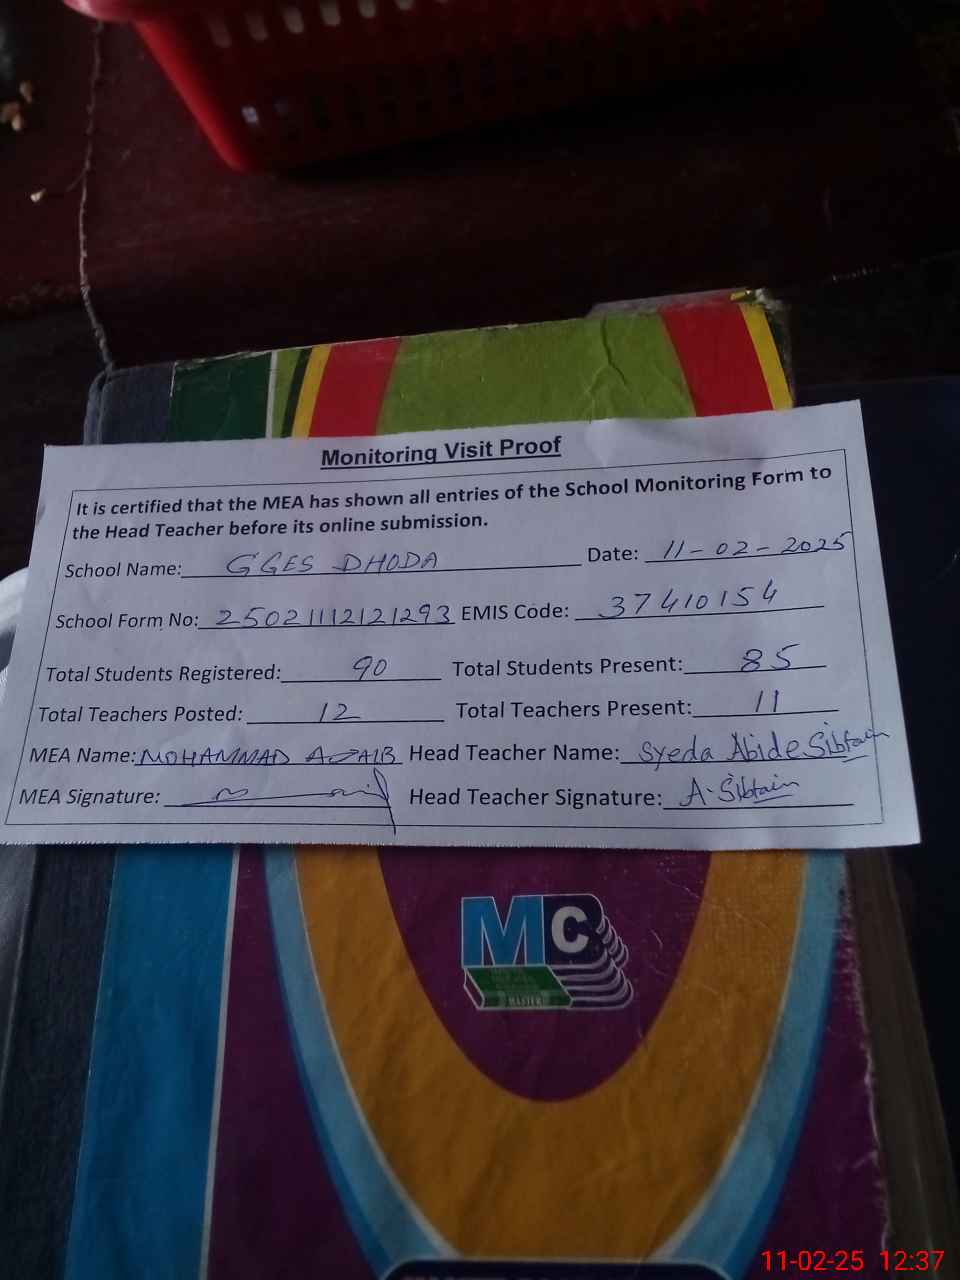 Monitoring Visit Proof
It is certified that the MEA has shown all entries of the School Monitoring Form to
the Head Teacher before its online submission.
School Name: GGES DHODA Date: 11-02-2025
School Form No: 25021112121293 EMIS Code: 37410154
Total Students Registered: 90 Total Students Present: 85
Total Teachers Posted: 12 Total Teachers Present: 11
MEA Name: MOHAMMAD AZAIB Head Teacher Name: Syeda Abide Sibtain
MEA Signature: Head Teacher Signature: A. Sibtain
MC
MASTER
11-02-25 12:37